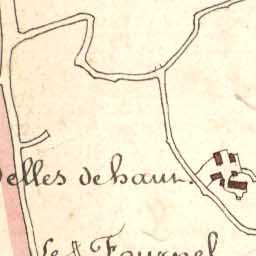 delles de haut.
le Fournel